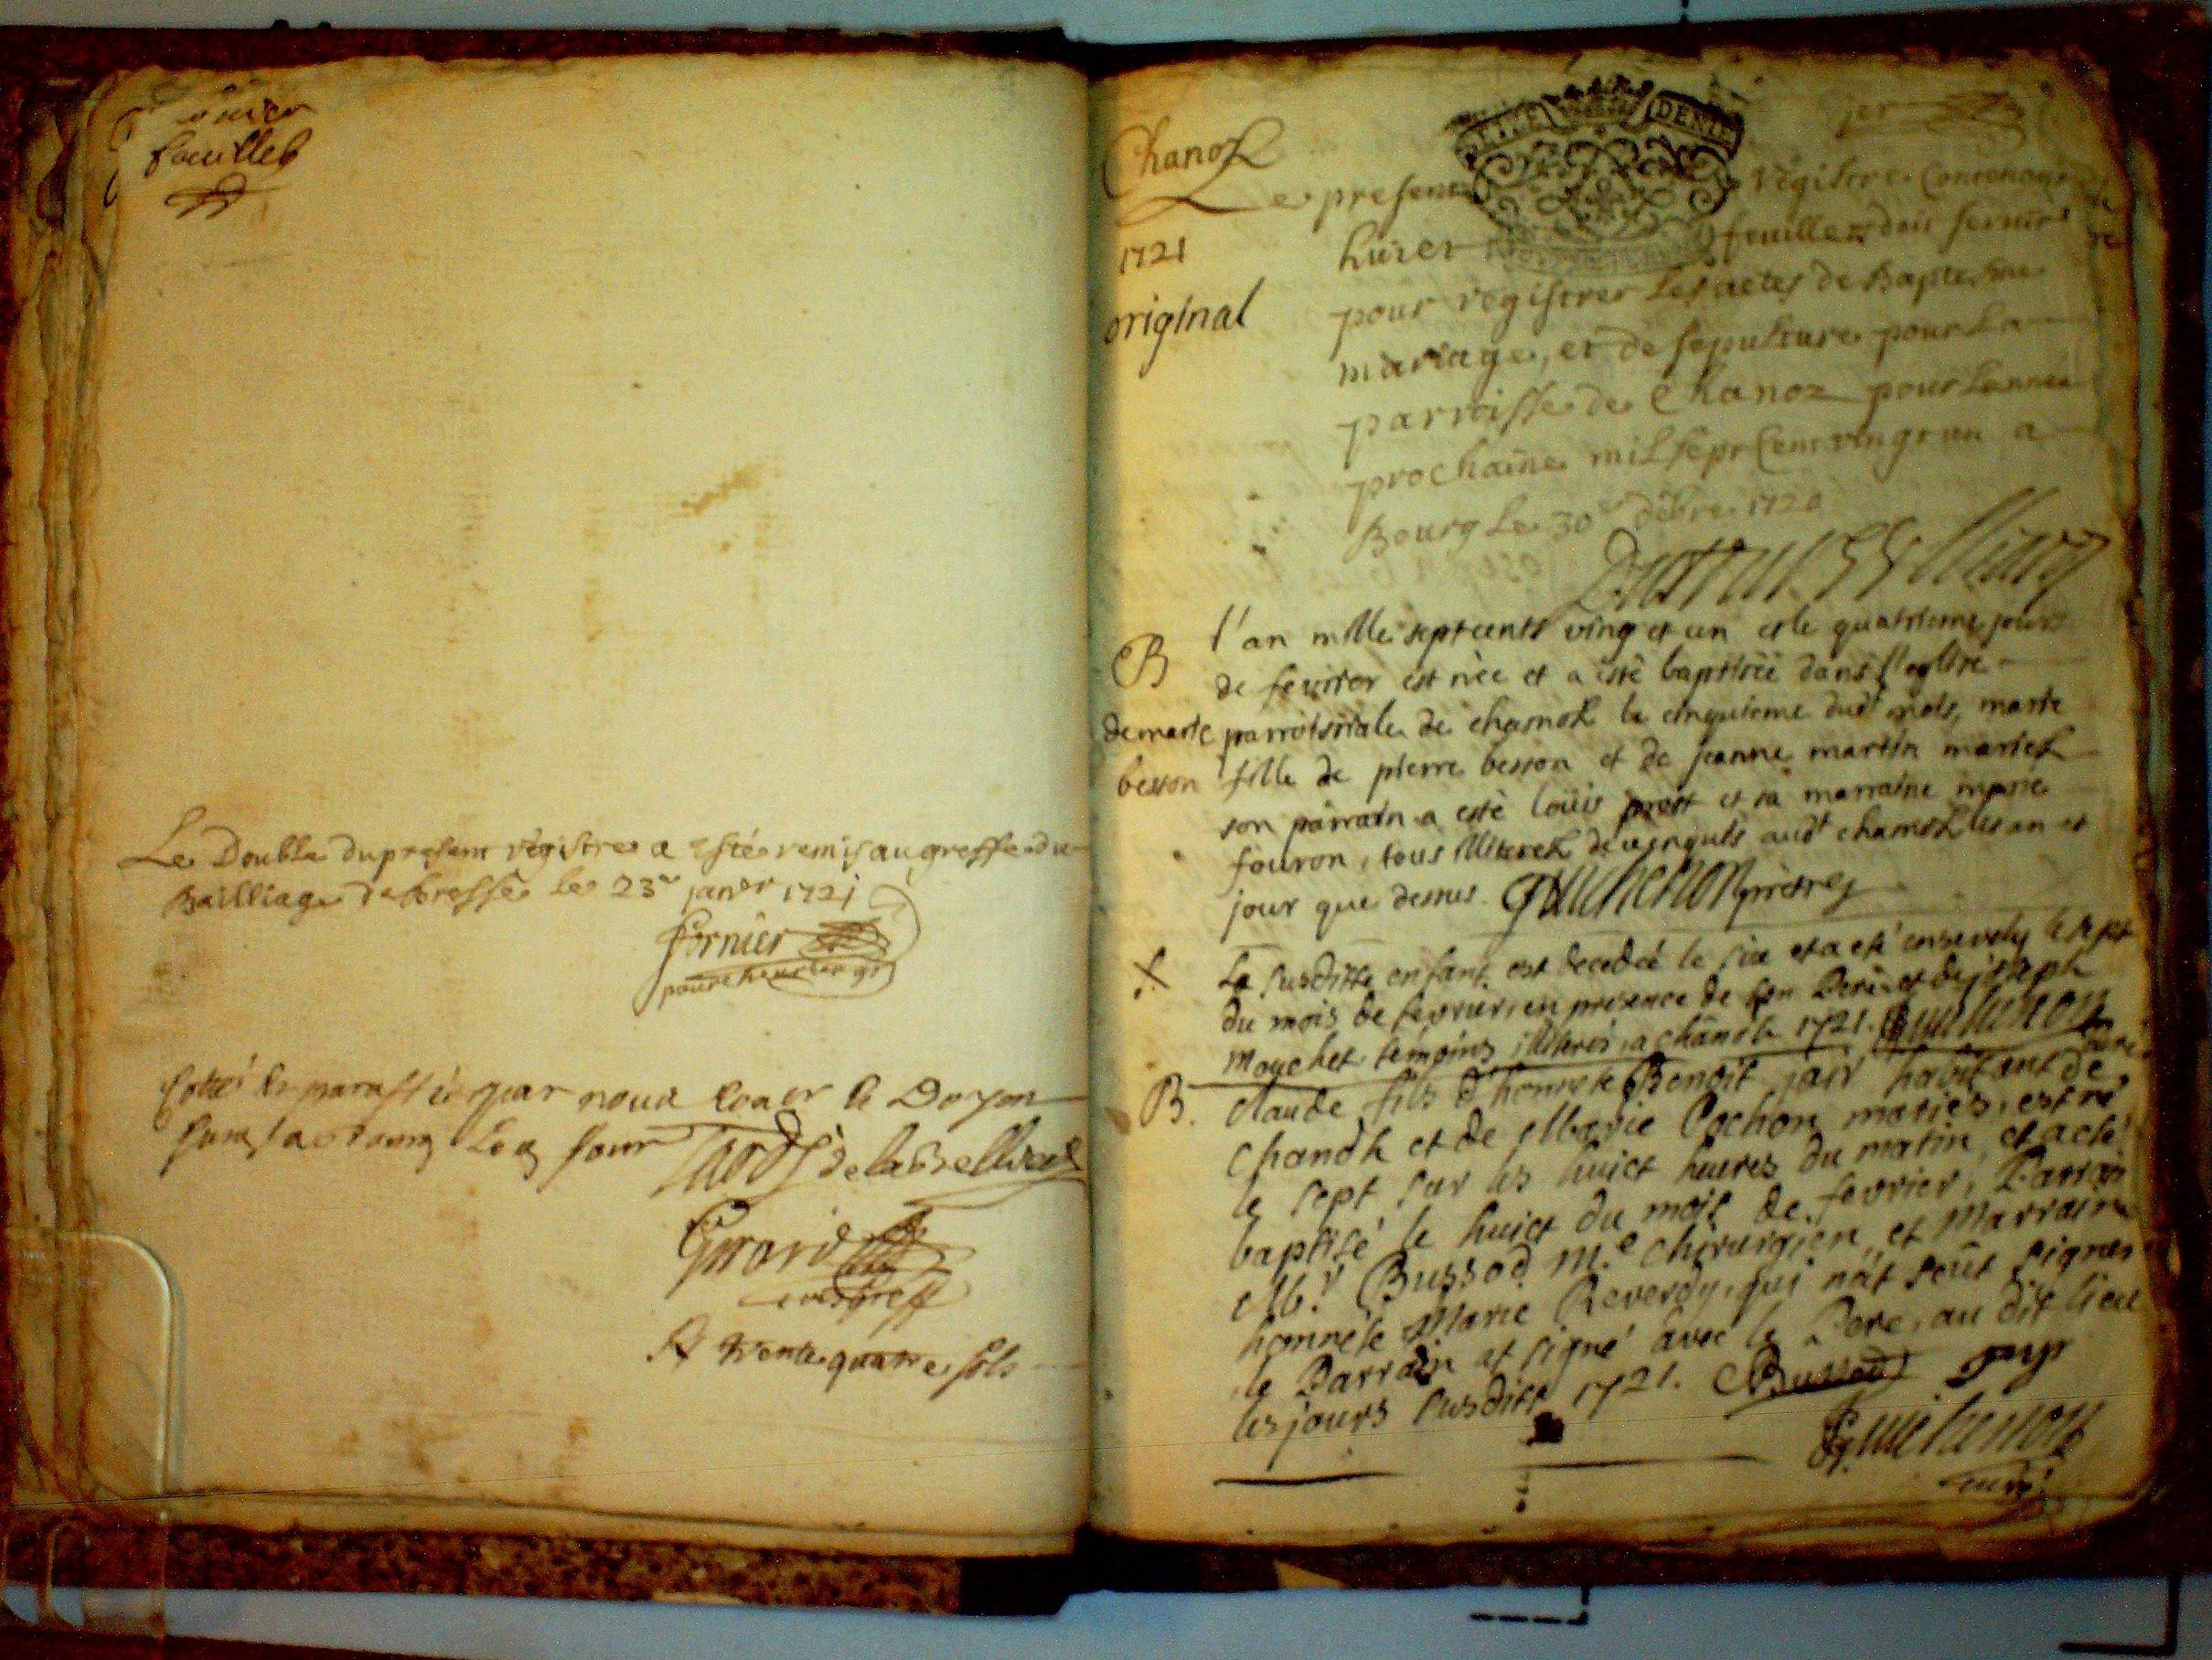 feuillet
Le Double du present régistre a esté remis au greffe du
Bailliage de bresse le 23e janvr 1721
fornier
Cotté et paraffé par nous
Girard
trente quatre sols
Chanoz
DENIE
1er
Le present régistre Contenant
1721
huict feuillez doit servir
original
pour régistrer Les actes de Baptesme
mariage, et de sepulture pour La
parroisse de Chanoz pour Lannée
prochaine mil sept Cent vingt un a
Bourg Le 30e debre 1720
l'an mille sept cents ving et un et le quatrieme jours
B
de fevrier est née et a esté baptisée dans l'eglise
de marie parroissiale de chanoz le cinquieme dudt mois, marie
besson fille de pierre besson et de jeanne martin mariez
son parrain a esté loüis prost et sa marraine marie
fouron, tous illiterez audt chanoz les an et
jour que dessus. guichenon prestre
S. La susditte enfant est decedée le six et a eté ensevely le sept
du mois de fevrier, en presence de son Pere et de joseph
mouchet temoins illiterés, a chanoz 1721. Guichenon
curé
B. Claude fils d'honnete Benoit habitant de
Chanoz et de Marie Cochon mariés, est né
le sept sur les huict heures du matin, et a eté
baptisé le huict du mois de fevrier, Parrain
Mr Bussod Me chirurgien, et Marraine
honnete Marie Reverdy, qui n'at sçut signer
le Parrain at signé avec le Pere, au dit lieu
les jours susdits 1721. Bussod
Guichenon
curé